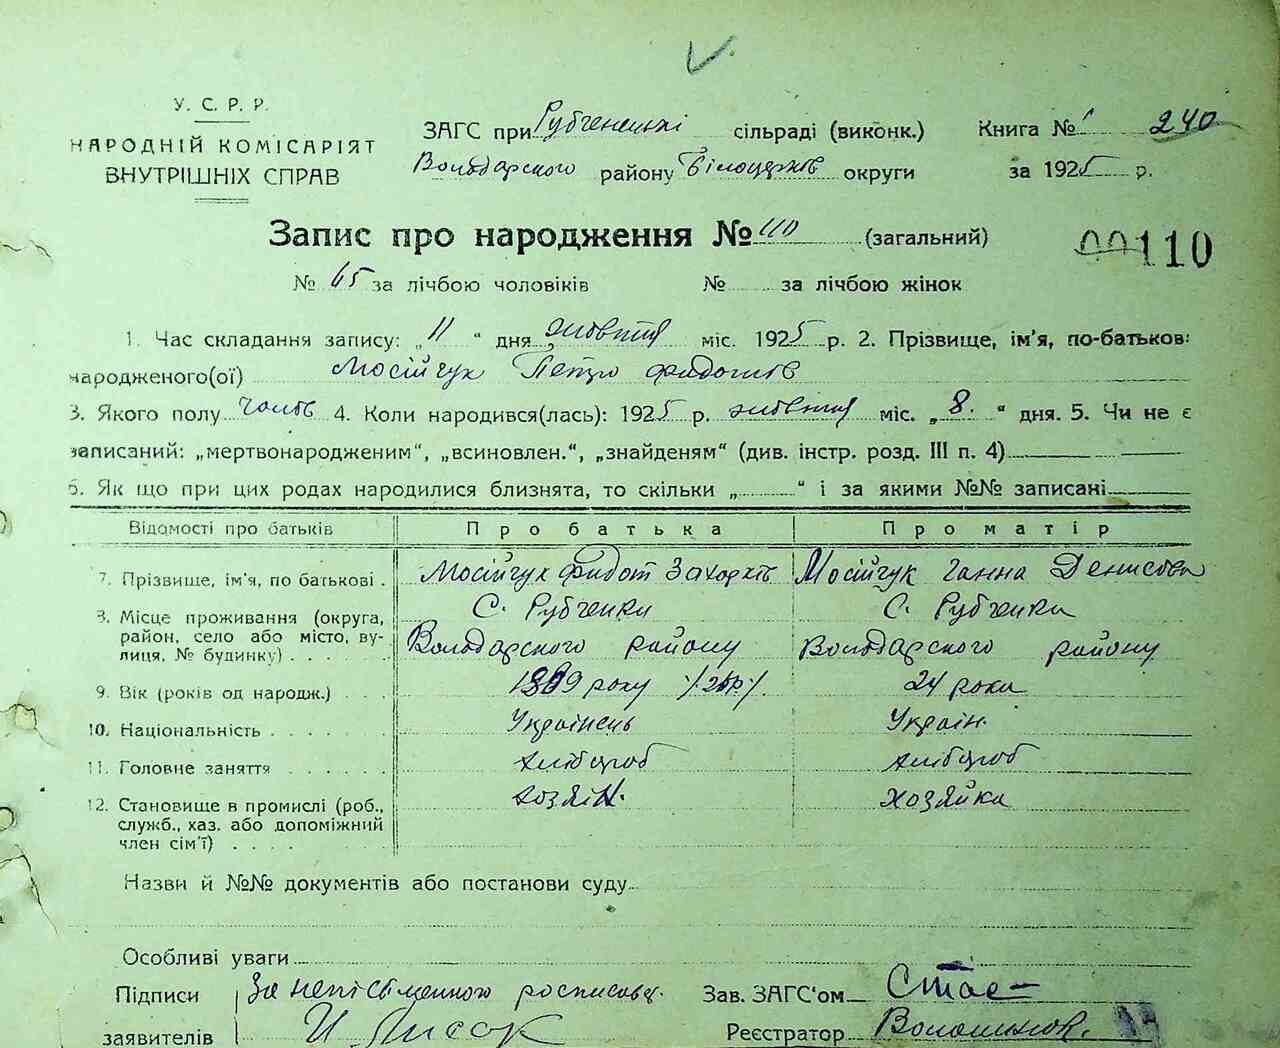 У. С. Р. Р.
НАРОДНІЙ КОМІСАРІЯТ
ВНУТРІШНІХ СПРАВ
ЗАГС при Рубченській сільраді (виконк.)
Володарского району Білоцерків округи
Книга № 1 240
за 1925 р.
Запис про народження № 110 (загальний)
00110
№ 65 за лічбою чоловіків № за лічбою жінок
1. Час складання запису: „11“ дня жовтня міс. 1925 р. 2. Прізвище, ім'я, по-батьков:
народженого(ої) Мосійчук Петро Фидотів
3. Якого полу чолов 4. Коли народився(лась): 1925 р. жовтня міс. „8.“ дня. 5. Чи не є
записаний: „мертвонародженим“, „всиновлен.“, „знайденям“ (див. інстр. розд. III п. 4)
6. Як що при цих родах народилися близнята, то скільки „ “ і за якими №№ записані
Відомості про батьків Про батька Про матір
7. Прізвище, ім'я, по батькові . Мосійчук Фидот Захарків Мосійчук Ганна Денисова
8. Місце проживання (округа, С. Рубченки С. Рубченки
район, село або місто, ву-
лиця, № будинку) . . . . . Володарского району Володарского району
9. Вік (років од народж.) . . . 1899 року 24 роки
10. Національність . . . . . . Українець Україн.
11. Головне заняття . . . . . . хлібороб хлібороб
12. Становище в промислі (роб., хозяїн. хозяйка
служб., хаз. або допоміжний
член сім'ї) . . . .
Назви й №№ документів або постанови суду
Особливі уваги
Підписи За неписьменного росписавс.
заявителів И Лисак
Зав. ЗАГС'ом
Реєстратор Волошинов.